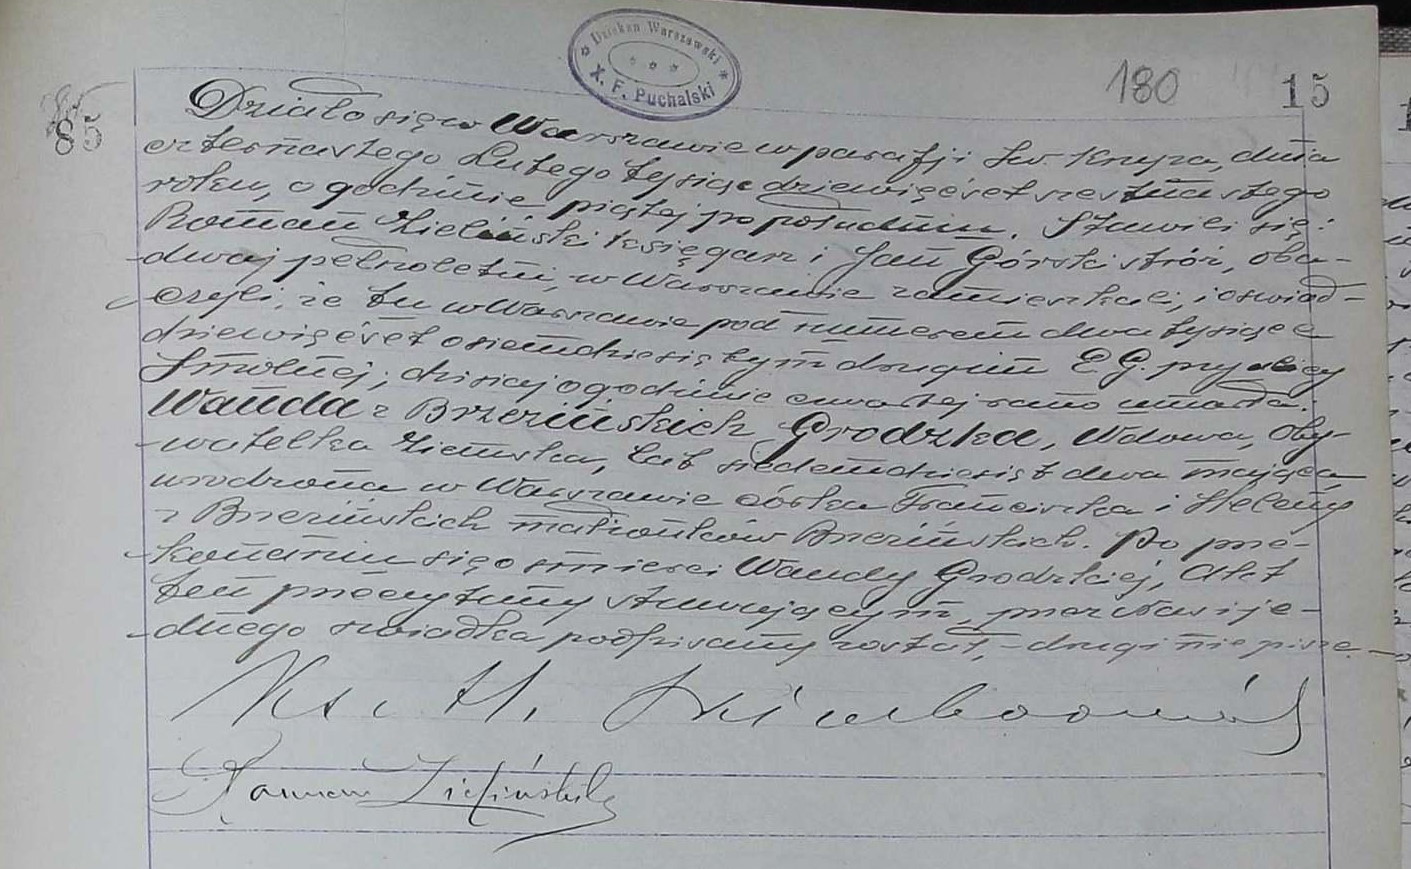 Dziekan Warszawski
X. F. Puchalski
180
15
85
Działo się w Warszawie w parafji Św. Krzyża, dnia
czternastego Lutego tysiąc dziewięćset szesnastego
roku, o godzinie piątej po południu. Stawili się:
Roman Zieliński księgarz i Jan Górski stróż, oba-
dwaj pełnoletni, w Warszawie zamieszkali, i oświad-
czyli, że tu w Warszawie pod numerem dwa tysiące
dziewięćset osiemdziesiątym drugim E G. przy ulicy
Smolnej, dzisiaj o godzinie czwartej rano umarła.
Wanda z Brzezińskich Grodzka, Wdowa, Oby-
watelka Ziemska, lat siedemdziesiąt dwa mająca,
urodzona w Warszawie córka Franciszka i Heleny
z Brzezińskich małżonków Brzezińskich. Po prze-
konaniu się o śmierci Wandy Grodzkiej, Akt
ten przeczytany stawającym, przez Nas i je-
dnego świadka podpisany został, drugi nie pisze.
Ks. H.
Roman Zieliński